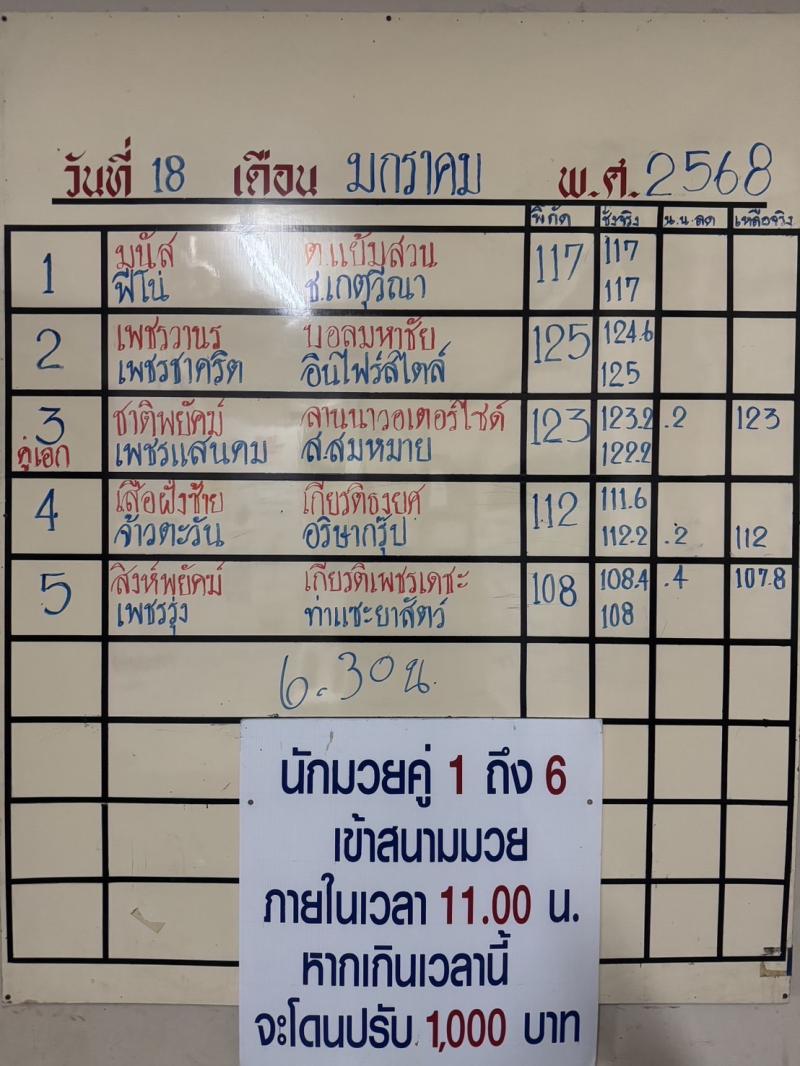 วันที่ 18 เดือน มกราคม พ.ศ. 2568
พิกัด ชั่งจริง น.น.ลด เหลือจริง
1 มนัส ต.แย้มสวน 117 117
ฟีโน่ ช.เกตุวีณา 117
2 เพชรวานร บอลมหาชัย 125 124.6
เพชรชาคริต อินไฟร์สไตล์ 125
3 ชาติพยัคฆ์ ลานนาวอเตอร์ไซด์ 123 123.2 .2 123
คู่เอก เพชรแสนคม ส.สมหมาย 122.2
4 เสือฝั่งซ้าย เกียรติธงยศ 112 111.6
จ้าวตะวัน อริษากรุ๊ป 112.2 .2 112
5 สิงห์พยัคฆ์ เกียรติเพชรเดชะ 108 108.4 .4 107.8
เพชรรุ่ง ท่าแซะยาสัตว์ 108
6.30 น.
นักมวยคู่ 1 ถึง 6
เข้าสนามมวย
ภายในเวลา 11.00 น.
หากเกินเวลานี้
จะโดนปรับ 1,000 บาท